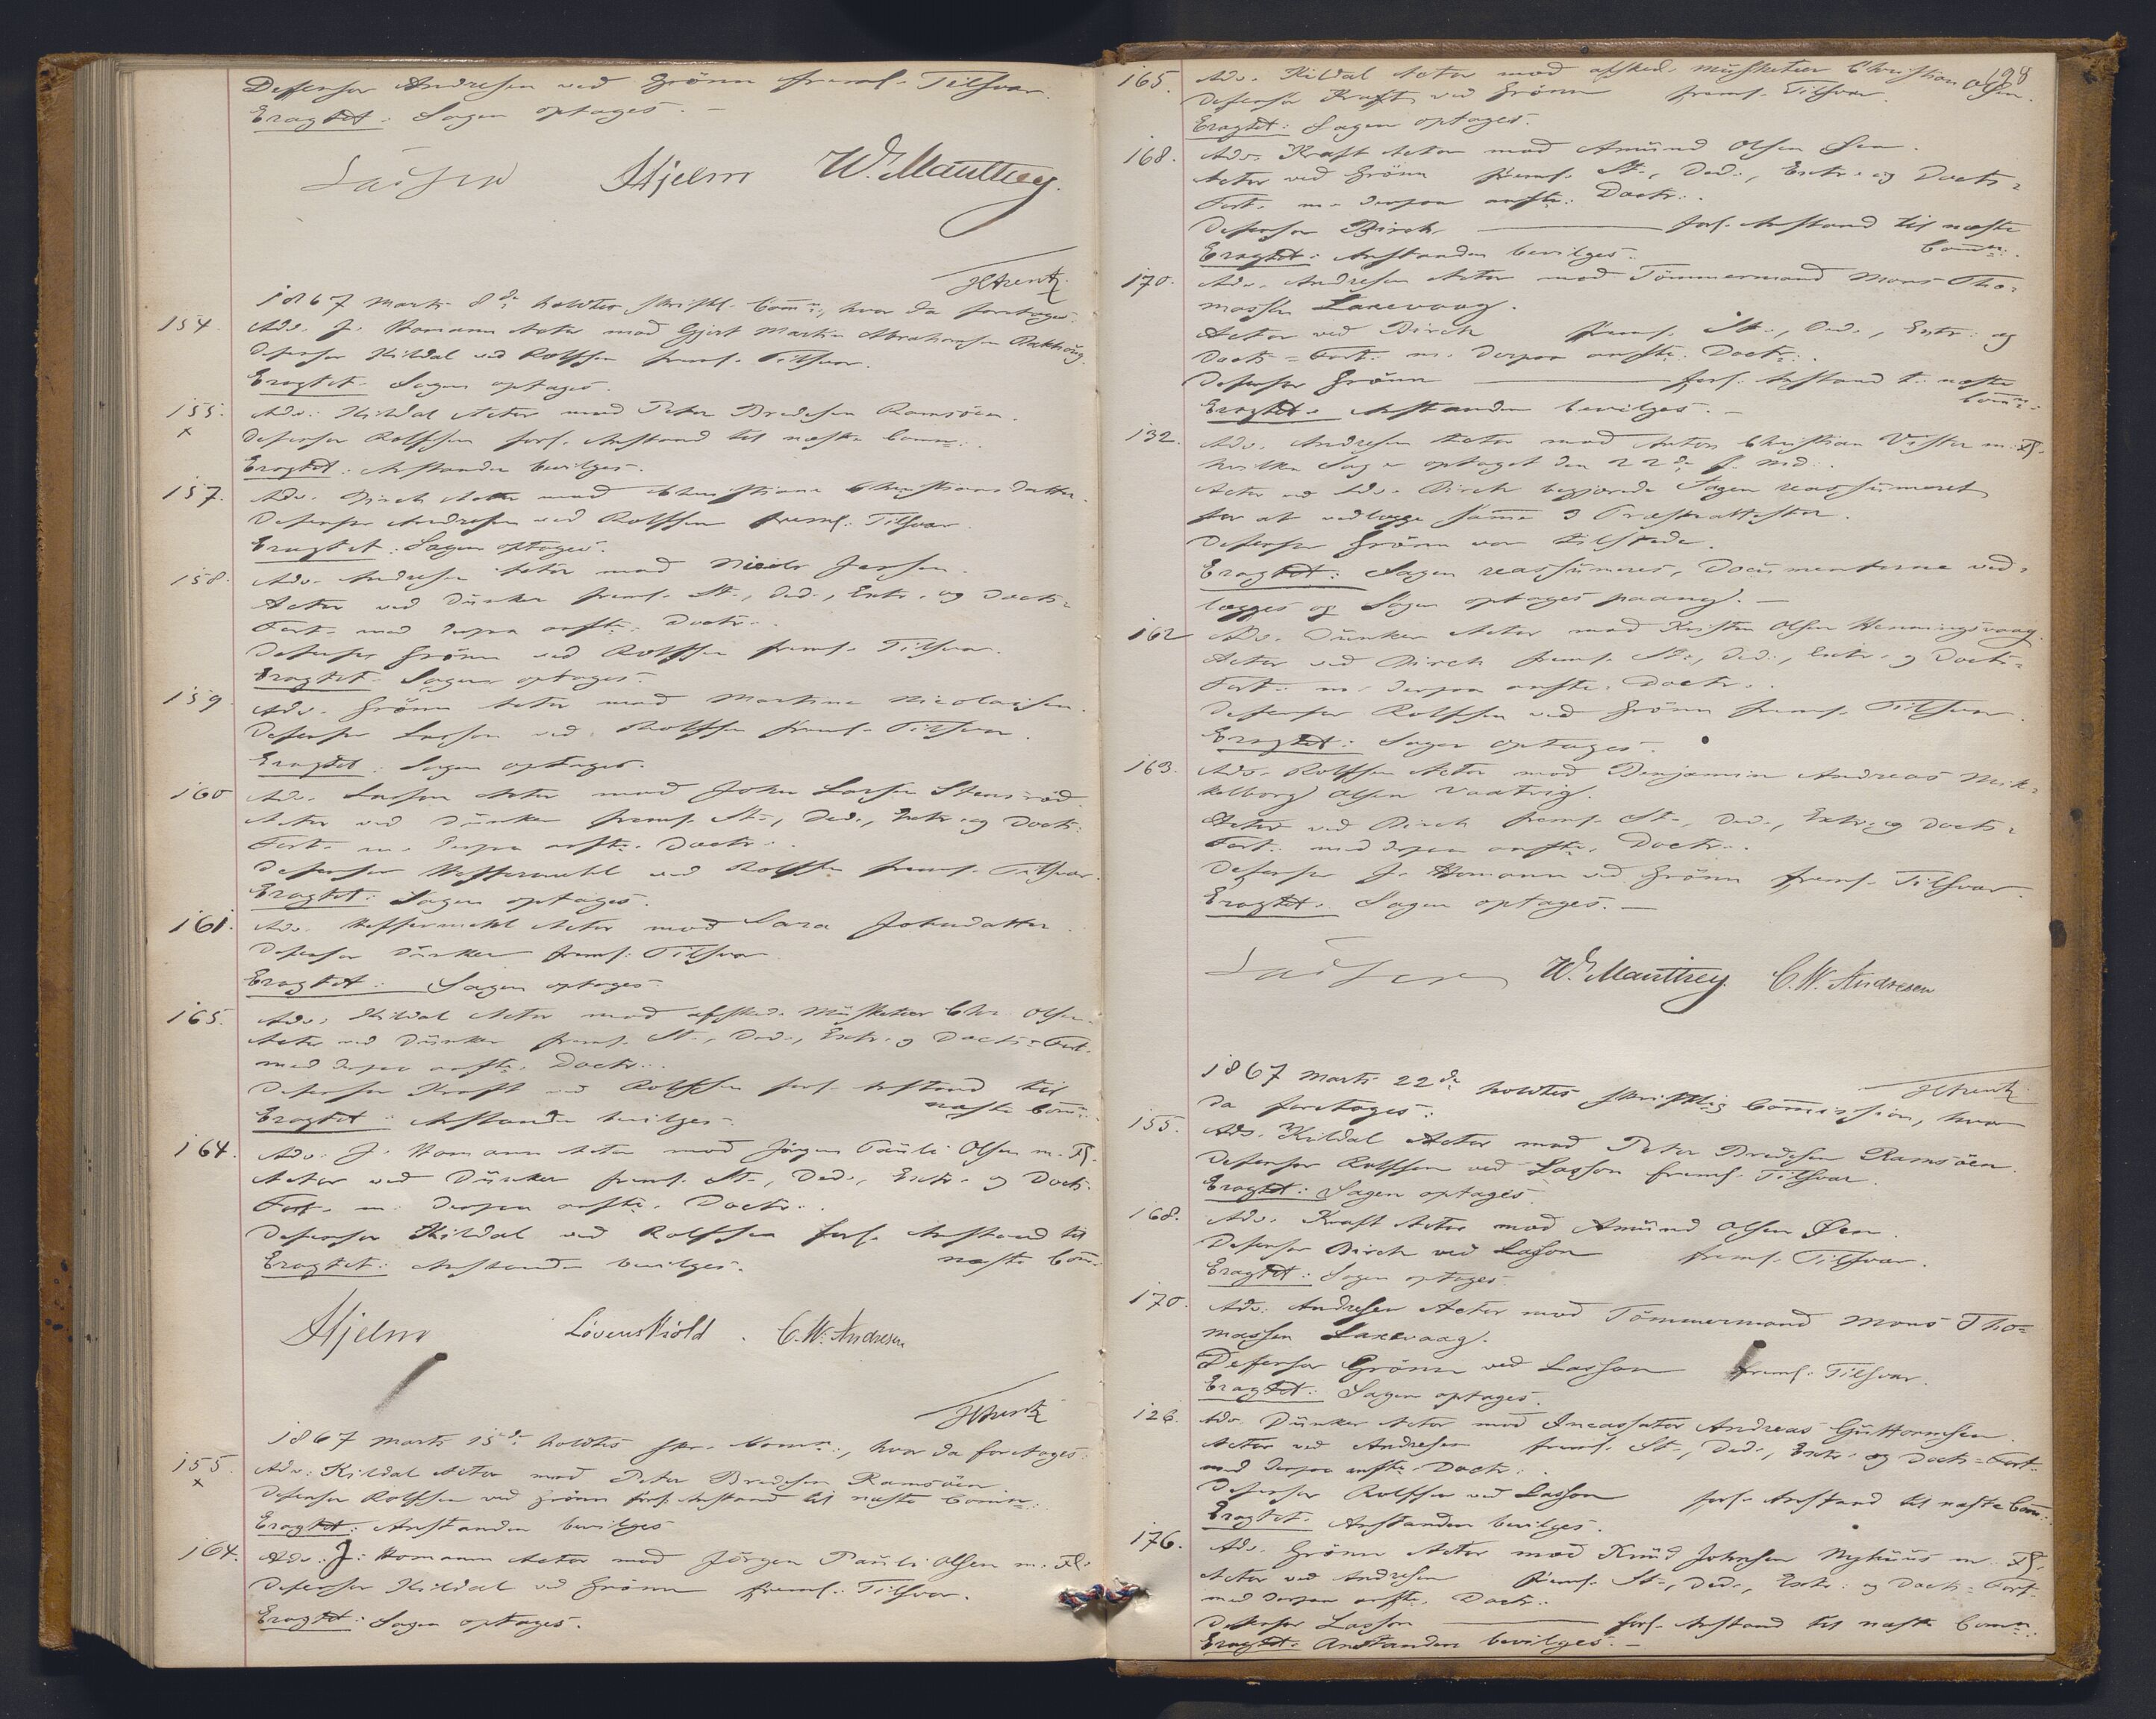 Defensor Andresen ved Grönn freml. Tilsvar.
Eragtet: Sagen optages. –
Hjelm W. Manthey.
1867 Marts 8de holdtes skriftl. Comm:, hvor da foretoges:
154. Adv. J. Homann Actor mod Gjert Martin Abrahamsen
Defensor Kildal ved Rolffsen freml. Tilsvar.
Eragtet. Sagen optages.
155. Adv. Kildal Actor mod Peter Bredesen Ramsöen.
x
Defensor Rolffsen forl. Anstand til næste Comm:.
Eragtet: Anstanden bevilges.
157. Adv. Birch Actor mod Christiane Christiansdatter.
Defensor Andresen ved Rolffsen freml. Tilsvar.
Eragtet: Sagen optages.
158. Adv. Andresen Actor mod Jensen.
Actor ved Dunker freml. St., Ded., Extr. og Docts=
Fort. med derpaa anfte. Doctr.
Defensor Grönn ved Rolffsen freml. Tilsvar.
Eragtet. Sagen optages.
159. Adv. Grönn Actor mod Martine Nicolaisen.
Defensor Lasson ved Rolffsen freml. Tilsvar.
Eragtet: Sagen optages.
160 Adv. Lasson Actor mod John Larsen Stensröd.
Actor ved Dunker freml. St., Ded., Extr. og Docts=
Fort. m. derpaa anfte. Doctr.
Defensor Heffermehl ved Rolffsen freml. Tilsvar.
Eragtet: Sagen optages.
161. Adv. Heffermehl Actor mod Sara Johnsdatter.
Defensor Dunker freml. Tilsvar.
Eragtet: Sagen optages.
165. Adv. Kildal Actor mod afsked. Musketeer Chr. Olsen.
Actor ved Dunker freml. St., Ded., Extr. og Docts=Fort.
med derpaa anfte. Doctr.
Defensor Kraft ved Rolffsen forl. Anstand til
næste Comm:.
Eragtet: Anstanden bevilges.
164. Adv. J. Homann Actor mod Jörgen Pauli Olsen m. Fl.
Actor ved Dunker freml. St., Ded., Extr. og Docts=
Fort. m. derpaa anfte. Doctr.
Defensor Kildal ved Rolffsen forl. Anstand til
næste Comm:
Eragtet: Anstanden bevilges.
Hjelm Lövenskiold. C. W. Andresen
1867 Marts 15de holdtes skr. Comm:, hvor da foretoges:
155. Adv. Kildal Actor mod Peter Bredesen Ramsöen
x
Defensor Rolffsen ved Grönn forl. Anstand til næste Comm:.
Eragtet: Anstanden bevilges
164. Adv. J. Homann Actor mod Jörgen Pauli Olsen m. Fl.
Defensor Kildal ved Grönn freml. Tilsvar.
Eragtet: Sagen optages.
128
165. Adv. Kildal Actor mod afsked. Musketeer Christian Olsen.
Defensor Kraft ved Grönn freml. Tilsvar.
Eragtet: Sagen optages.
168. Adv. Kraft Actor mod Amund Olsen Öen.
Actor ved Grönn freml. St., Ded., Extr. og Docts=
Fort. m. derpaa anfte. Doctr.
Defensor Birch forl. Anstand til næste
Comm:.
Eragtet: Anstanden bevilges.
170. Adv. Andresen Actor mod Tömmermand Mons Tho=
massen Laxevaag.
Actor ved Birch freml. St., Ded., Extr. og
Docts=Fort. m. derpaa anfte. Doctr.
Defensor Grönn forl. Anstand t. næste
Comm:.
Eragtet: Anstanden bevilges. –
132. Adv. Andresen Actor mod Anton Christian Vister m. Fl.
hvilken Sag er optaget den 22de f. Md.
Actor ved Adv. Birch begjærede Sagen reassumeret
for at vedlægge samme 3 Præsteattester.
Defensor Grönn var tilstede.
Eragtet: Sagen reassumeres, Documenterne ved=
lægges og Sagen optages paany. –
162 Adv. Dunker Actor mod Kristen Olsen Henningsvaag.
Actor ved Birch freml. St., Ded., Extr. og Docts=
Fort. m. derpaa anfte. Doctr.
Defensor Rolffsen ved Grönn freml. Tilsvar.
Eragtet: Sagen optages.
163. Adv. Rolffsen Actor mod Benjamin Andreas Mik=
kelborg Olsen
Actor ved Birch freml. St., Ded., Extr. og Docts=
Fort. med derpaa anfte. Doctr.
Defensor J. Homann ved Grönn freml. Tilsvar.
Eragtet. Sagen optages. –
W. Manthey. C. W. Andresen
1867 Marts 22de holdtes skriftlig Commission, hvor
da foretoges:
155. Adv. Kildal Actor mod Peter Bredesen Ramsöen.
Defensor Rolffsen ved Lasson freml. Tilsvar.
Eragtet: Sagen optages.
168. Adv. Kraft Actor mod Amund Olsen Öen.
Defensor Birch ved Lasson freml. Tilsvar.
Eragtet: Sagen optages.
170. Adv. Andresen Actor mod Tömmermand Mons Tho=
massen Laxevaag.
Defensor Grönn ved Lasson freml. Tilsvar.
Eragtet: Sagen optages.
126. Adv. Dunker Actor mod Incassator Andreas Guttormsen.
Actor ved Andresen freml. St., Ded., Extr. og Docts=Fort.
med derpaa anfte. Doctr.
Defensor Rolffsen ved Lasson forl. Anstand til næste Comm:.
Eragtet. Anstanden bevilges.
176. Adv. Grönn Actor mod Knud Johnsen Nyhuus m. Fl.
Actor ved Andresen freml. St., Ded., Extr. og Docts=Fort.
med derpaa anfte. Doctr.
Defensor Lasson forl. Anstand til næste Comm:.
Eragtet. Anstanden bevilges. –